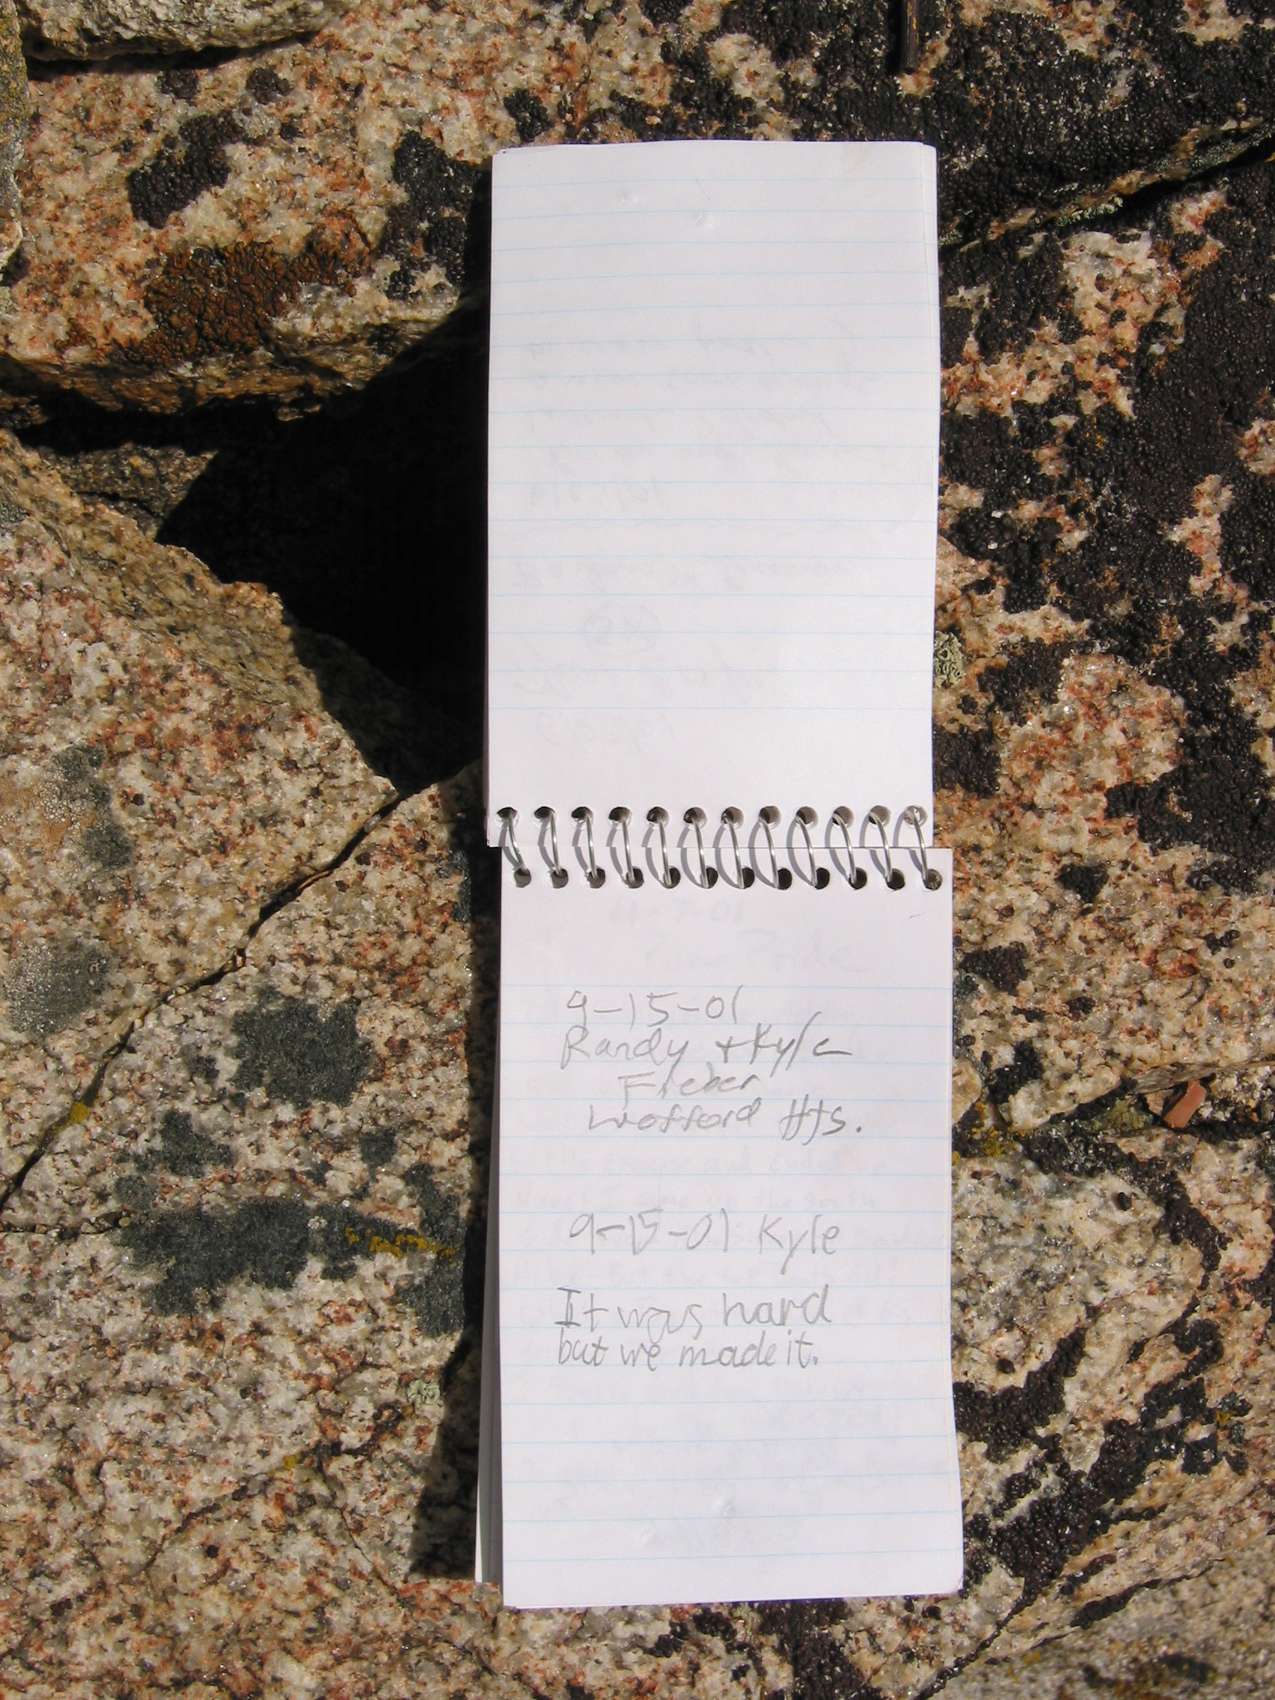 9-15-01
Randy + Kyle
Fieber
Wofford Hts.
9-15-01 Kyle
It was hard
but we made it.